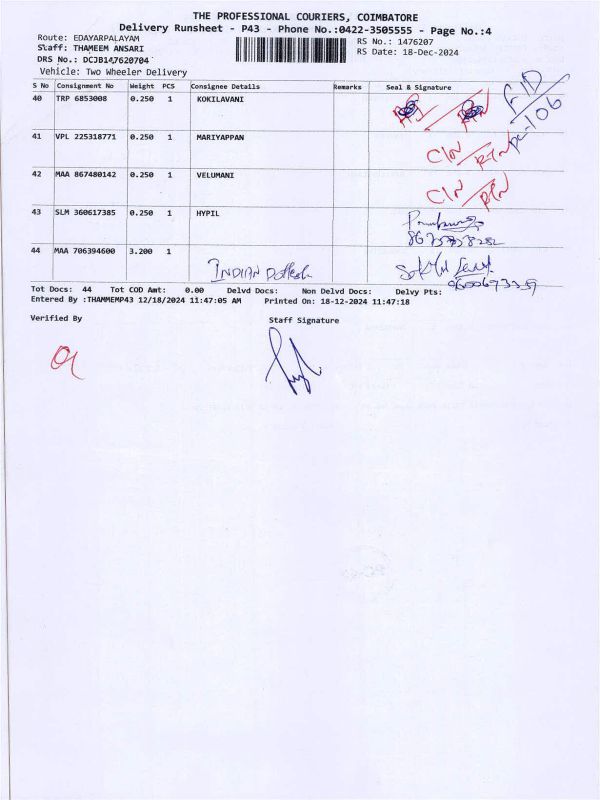 THE PROFESSIONAL COURIERS, COIMBATORE
Delivery Runsheet - P43 - Phone No.:0422-3505555 - Page No.:4
Route: EDAYARPALAYAM
RS No.: 1476207
Staff: THAMEEM ANSARI
RS Date: 18-Dec-2024
DRS No.: DCJB147620704
Vehicle: Two Wheeler Delivery
S No Consignment No Weight PCS Consignee Details Remarks Seal & Signature
40 TRP 6853008 0.250 1 KOKILAVANI
41 VPL 225318771 0.250 1 MARIYAPPAN CIN/RTN
42 MAA 867480142 0.250 1 VELUMANI CIN/RTN
43 SLM 360617385 0.250 1 HYPIL
44 MAA 706394600 3.200 1
INDIAN
Tot Docs: 44 Tot COD Amt: 0.00 Delvd Docs: Non Delvd Docs: Delvy Pts:
Entered By :THAMMEMP43 12/18/2024 11:47:05 AM Printed On: 18-12-2024 11:47:18
Verified By Staff Signature